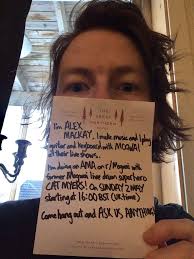 THE GREAT NORTHERN
I'm ALEX
MACKAY. I make music and I play
guitar and keyboard with MOGWAI
at their live shows.
I'm doing an AMA on r/Mogwai with
former Mogwai live drum superhero
CAT MYERS! On SUNDAY 2 MAY
starting at 16:00 BST (UK time)
Come hang out and ASK US ANYTHING!